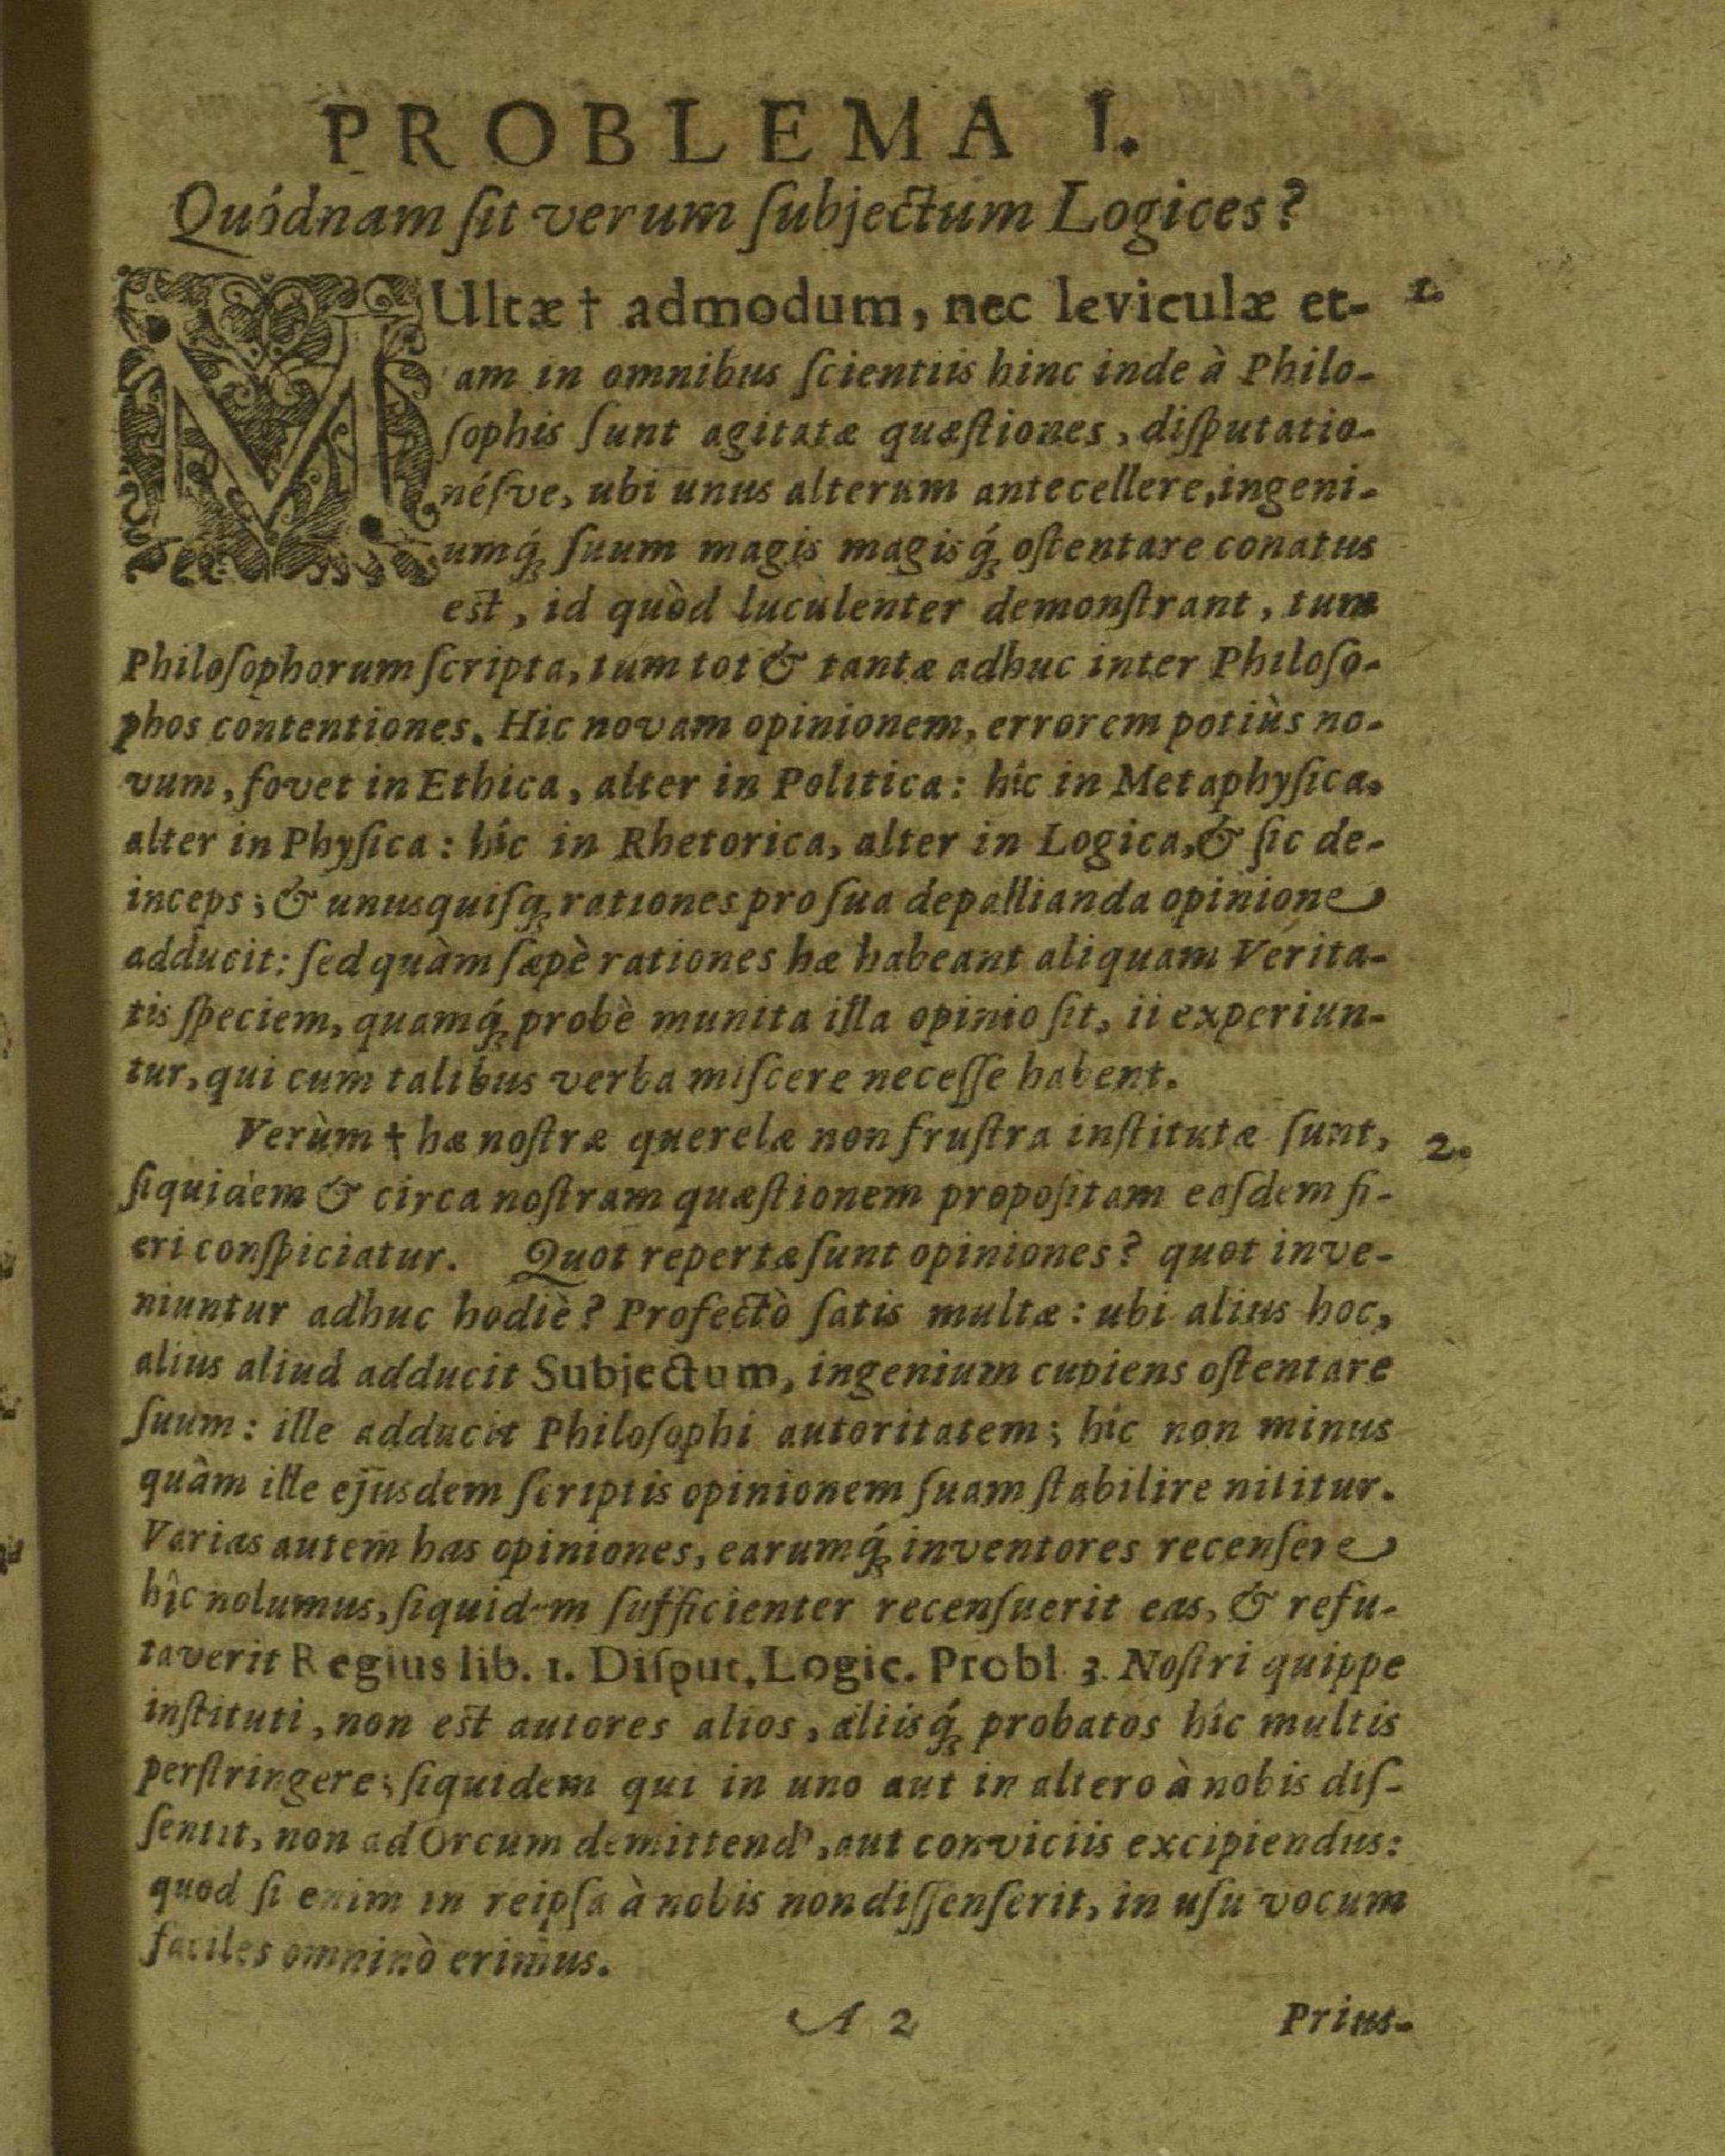 PROBLEMA I.
Quódnam ſit verum ſubjectum Logices?
MUltæ † admodum, nec leviculæ et- 1.
am in omnibus ſcientiis hinc inde à Philo-
ſophis ſunt agitatæ quæſtiones, diſputatio-
néſve, ubi unus alterum antecellere, ingeni-
umq́; ſuum magis magisq́; oſtentare conatus
est, id quòd luculenter demonſtrant, tum
Philoſophorum ſcripta, tum tot & tantæ adhuc inter Philoſo-
phos contentiones. Hic novam opinionem, errorem potiùs no-
vum, fovet in Ethica, alter in Politica: hîc in Metaphyſica,
alter in Phyſica: hîc in Rhetorica, alter in Logica, & ſic de-
inceps; & unusquiſq; rationes pro ſua depallianda opinione
adducit: ſed quàm ſæpè rationes hæ habeant aliquam Verita-
tis ſpeciem, quamq́; probè munita illa opinio ſit, ii experiun-
tur, qui cum talibus verba miſcere neceſſe habent.
Verùm † hæ noſtræ querelæ non fruſtra inſtitutæ ſunt, 2.
ſiquidem & circa noſtram quæſtionem propoſitam eaſdem fi-
eri conſpiciatur. Quot repertæ ſunt opiniones? quot inve-
niuntur adhuc hodiè? Profectò ſatis multæ: ubi alius hoc,
alius aliud adducit Subjectum, ingenium cupiens oſtentare
ſuum: ille adducit Philoſophi autoritatem; hîc non minus
quàm ille ejusdem ſcriptis opinionem ſuam ſtabilire nititur.
Varias autem has opiniones, earumq́; inventores recenſere
hîc nolumus, ſiquidem ſufficienter recenſuerit eas, & refu-
taverit Regius lib. 1. Diſput. Logic. Probl. 3. Noſtri quippe
inſtituti, non est autores alios, aliisq́; probatos hîc multis
perſtringere; ſiquidem qui in uno aut in altero à nobis diſ-
ſentit, non ad Orcum demittend', aut conviciis excipiendus:
quod ſi enim in reipſa à nobis non diſſenſerit, in uſu vocum
faciles omninò erimus.
A 2 Prius-